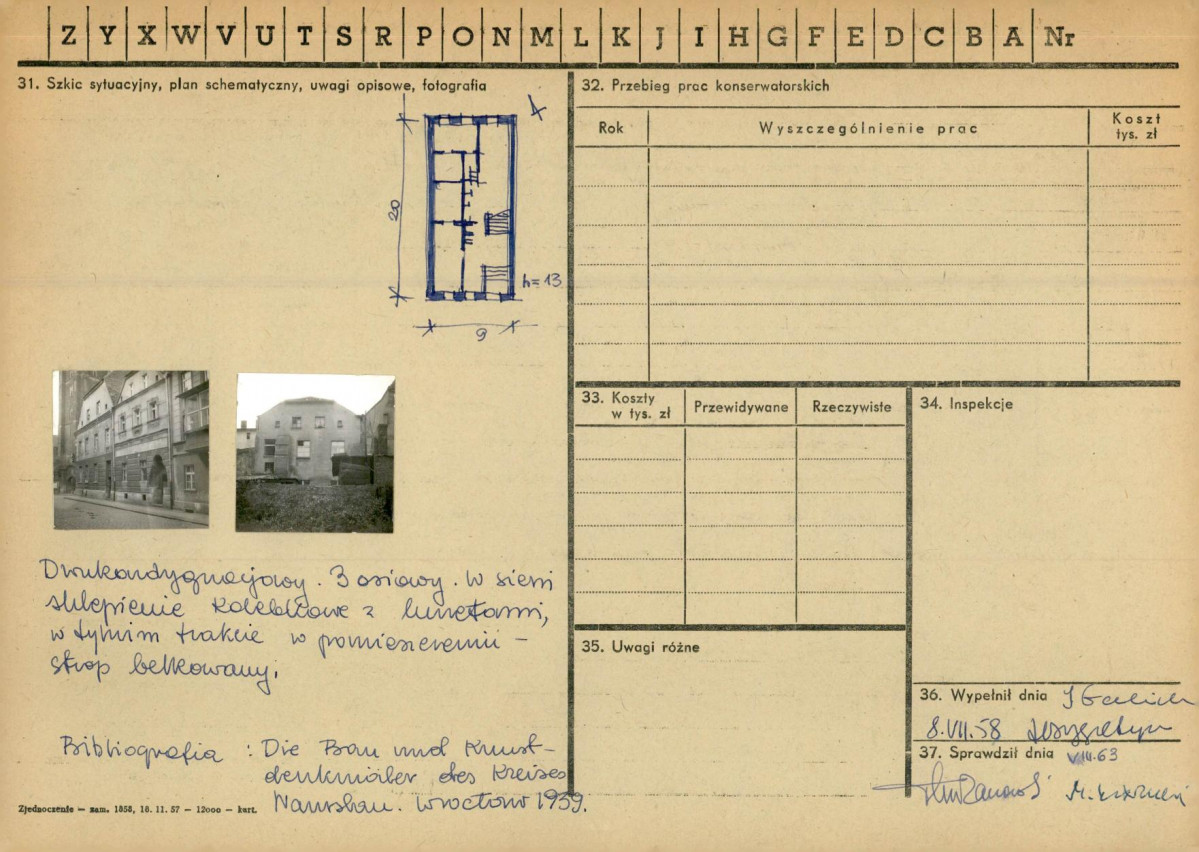 Z Y X W V U T S R P O N M L K J I H G F E D C B A Nr
31. Szkic sytuacyjny, plan schematyczny, uwagi opisowe, fotografia
20
h=13
9
Dwukondygnacjowy. 3 osiowy. W sieni
sklepienie kolebkowe z lunetami,
w tylnim trakcie w pomieszczeniu –
strop belkowany.
Bibliografia : Die Bau und Kunst-
denkmäler des Kreises
Namslau. Wrocław 1939.
Zjednoczenie — zam. 1858, 16. 11. 57 — 12000 — kart.
32. Przebieg prac konserwatorskich
Rok
Wyszczególnienie prac
Koszt
tys. zł
33. Koszty
w tys. zł
Przewidywane
Rzeczywiste
34. Inspekcje
35. Uwagi różne
36. Wypełnił dnia
8.VII.58
37. Sprawdził dnia VIII.63